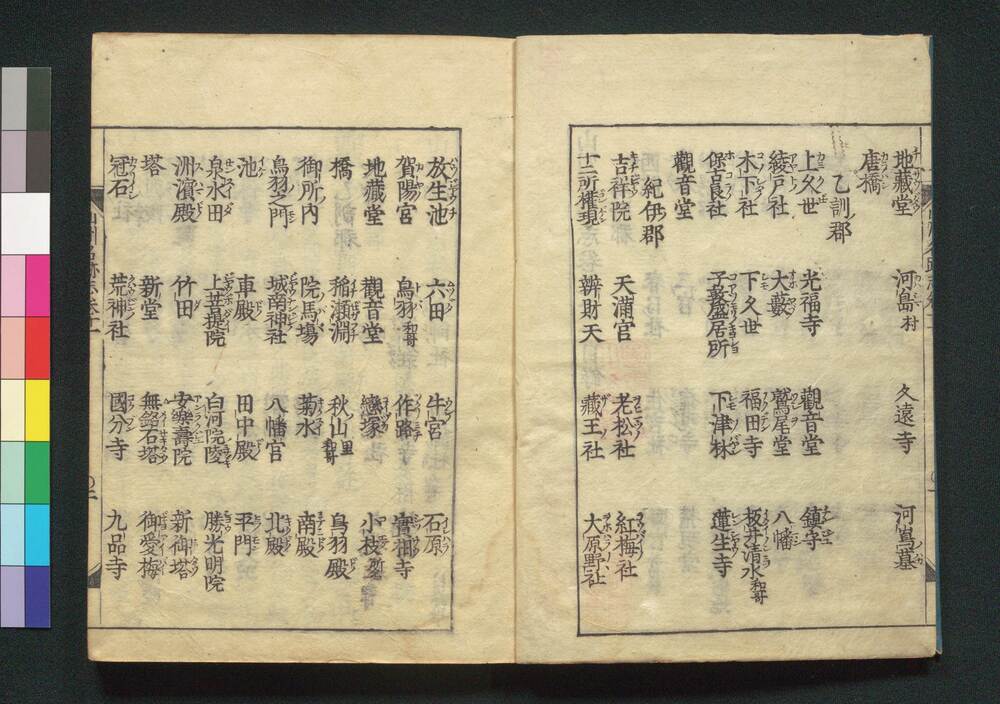 地蔵堂 河島村 久遠寺 河嶌墓
唐橋
乙訓郡
上久世 光福寺 觀音堂 鎮守
綾戸社 大藪 鷲尾堂 八幡
木下社 下久世 福田寺 坂井清水和哥
子守盛居所 下津林 蓮生寺
觀音堂
紀伊郡
吉祥院 天滿宮 老松社 紅梅社
十二所權現 辨財天 藏王社 大原野社
放生池 六田 牛宮 石原
賀陽宮 鳥羽和哥 作路 實相寺
地藏堂 觀音堂 戀塚 小枝
橋 稲瀬淵 秋山里和哥 鳥羽殿
御所内 院馬場 菊水 南殿
鳥羽之門 城南神社 八幡宮 北殿
池 車殿 田中殿 平門
泉水田 上菩提院 白河院陵 勝光明院
洲濱殿 竹田 安楽壽院 新御塔
塔 新堂 無銘石塔 御愛梅
冠石 荒神社 國分寺 九品寺